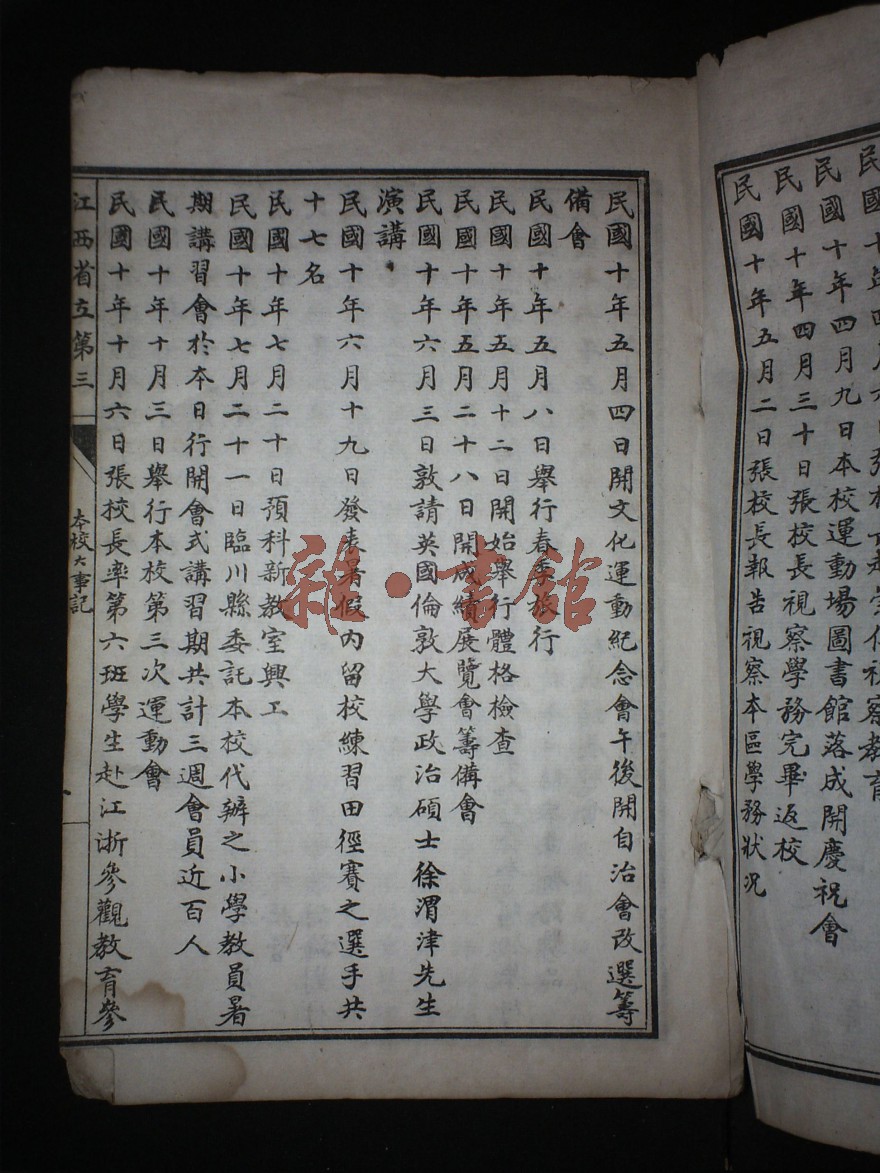 民國十年四月
視察教育
民國十年四月九日本校運動場圖書館落成開慶祝會
民國十年四月三十日張校長視察學務完畢返校
民國十年五月二日張校長報告視察本區學務狀況
民國十年五月四日開文化運動紀念會午後開自治會改選籌
備會
民國十年五月八日舉行春季旅行
民國十年五月十二日開始舉行體格檢查
民國十年五月二十八日開成績展覽會籌備會
民國十年六月三日敦請英國倫敦大學政治碩士徐渭津先生
演講
民國十年六月十九日發表暑假內留校練習田徑賽之選手共
十七名
民國十年七月二十日預科新教室興工
民國十年七月二十一日臨川縣委託本校代辦之小學教員暑
期講習會於本日行開會式講習期共計三週會員近百人
民國十年十月三日舉行本校第三次運動會
民國十年十月六日張校長率第六班學生赴江浙參觀教育參
江西省立第三
本校大事記
雜·書館